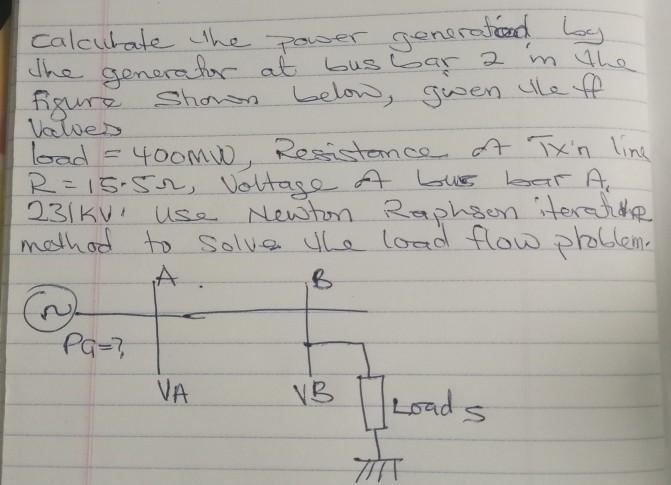 Calculate the power generated by
the generator at busbar 2 in the
figure shown below, given the ff
Values
load = 400MW, Resistance of Tx'n line
R = 15.5Ω, Voltage A bus bar A,
231KV. Use Newton Raphson iterative
method to solve the load flow problem.
A B
~
PG=?
VA VB
Load S